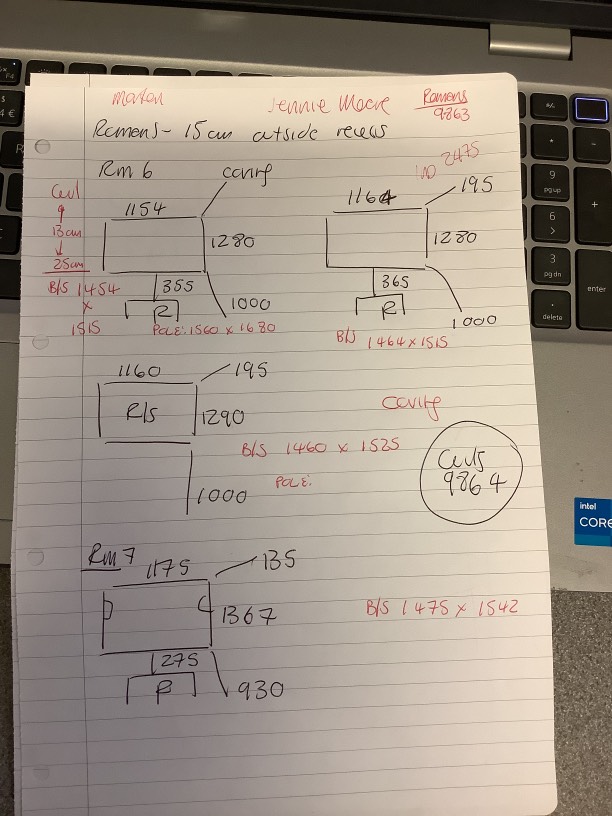 Morton Jennie Moore Romens
9863
Romens - 15cm outside recess
Rm 6
1154
1280
355
R
1000
B/S 1454
x
1515
POLE: 1560 x 1680
13cm
25cm
2475
1164 195
1280
365
R
1000
B/S 1464 x 1515
1160 195
R/S 1290
B/S 1460 x 1525
POLE:
1000
9864
Rm 7
1175 135
1367
B/S 1475 x 1542
275
R
930
F4
4 €
R
9
pg up
6
3
pg dn
.
delete
+
-
*
enter
intel
CORE